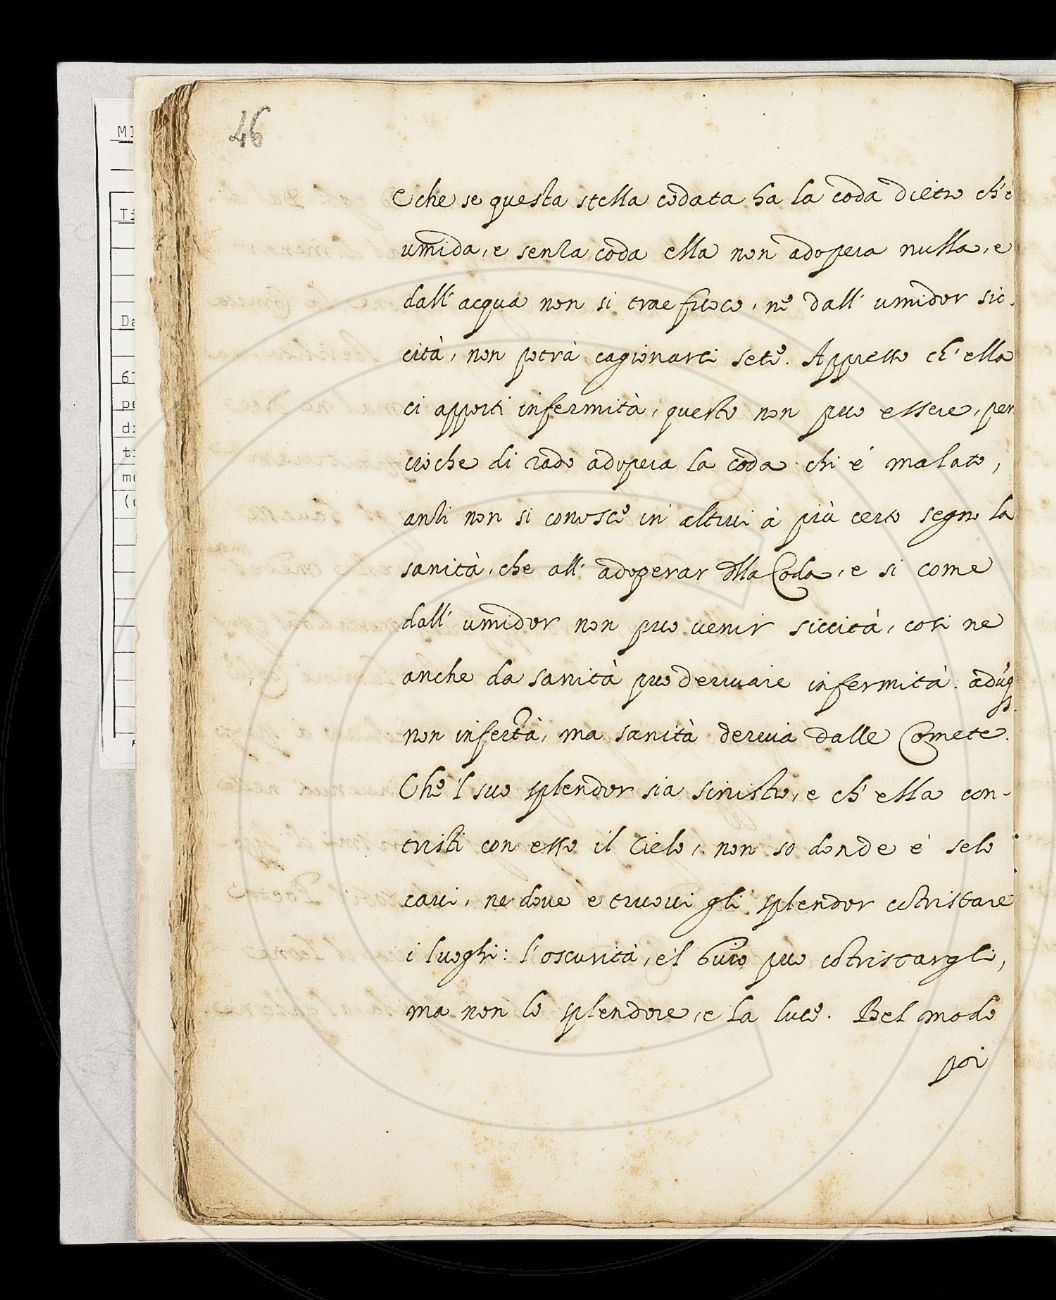 46
e che se questa stella codata ha la coda dietro ch'è
umida, e senza coda ella non adopera nulla, e
dall' acqua non si trae fuoco, nè dall' umidor sic-
cità, non potrà cagionarci sete. Appresso ch' ella
ci apporti infermità, questo non puo essere, per
cioche di rado adopera la coda chi è malato,
anzi non si conosce in altrui à più certo segno la
sanità, che all' adoperar della Coda, e si come
dall' umidor non puo venir siccità, cosi ne
anche da sanità puo derivare infermità. adũq
non inferta, ma sanità deriva dalle Comete.
Che 'l suo splendor sia sinistro, e ch' ella con-
tristi con esso il Cielo, non so donde e' selo
cavi, ne dove e truovi gli splendor cõtristare
i luoghi: l'oscurità, e'l buio puo cõtristargli,
ma non lo splendore, e la luce. Bel modo
poi